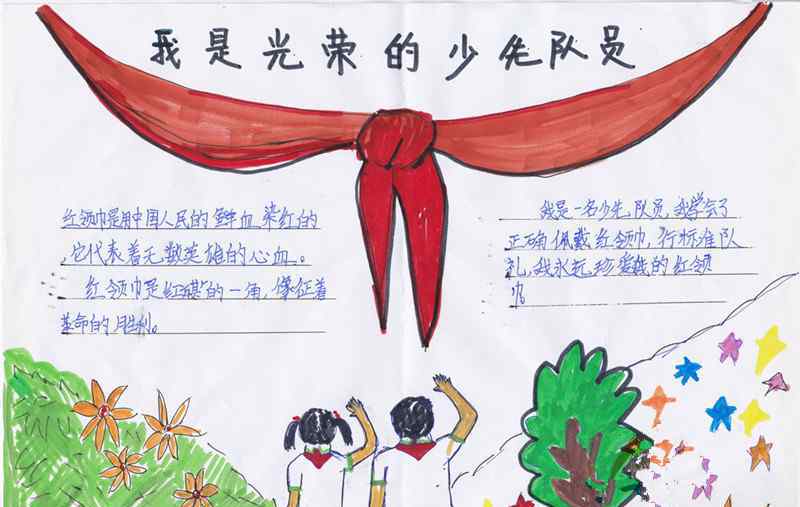 我是光荣的少先队员
红领巾是用中国人民的鲜血染红的
,它代表着无数英雄的心血。
红领巾是红旗的一角,象征着
革命的胜利。
我是一名少先队员,我学会了
正确佩戴红领巾,行标准队
礼,我永远珍爱我的红领
巾。